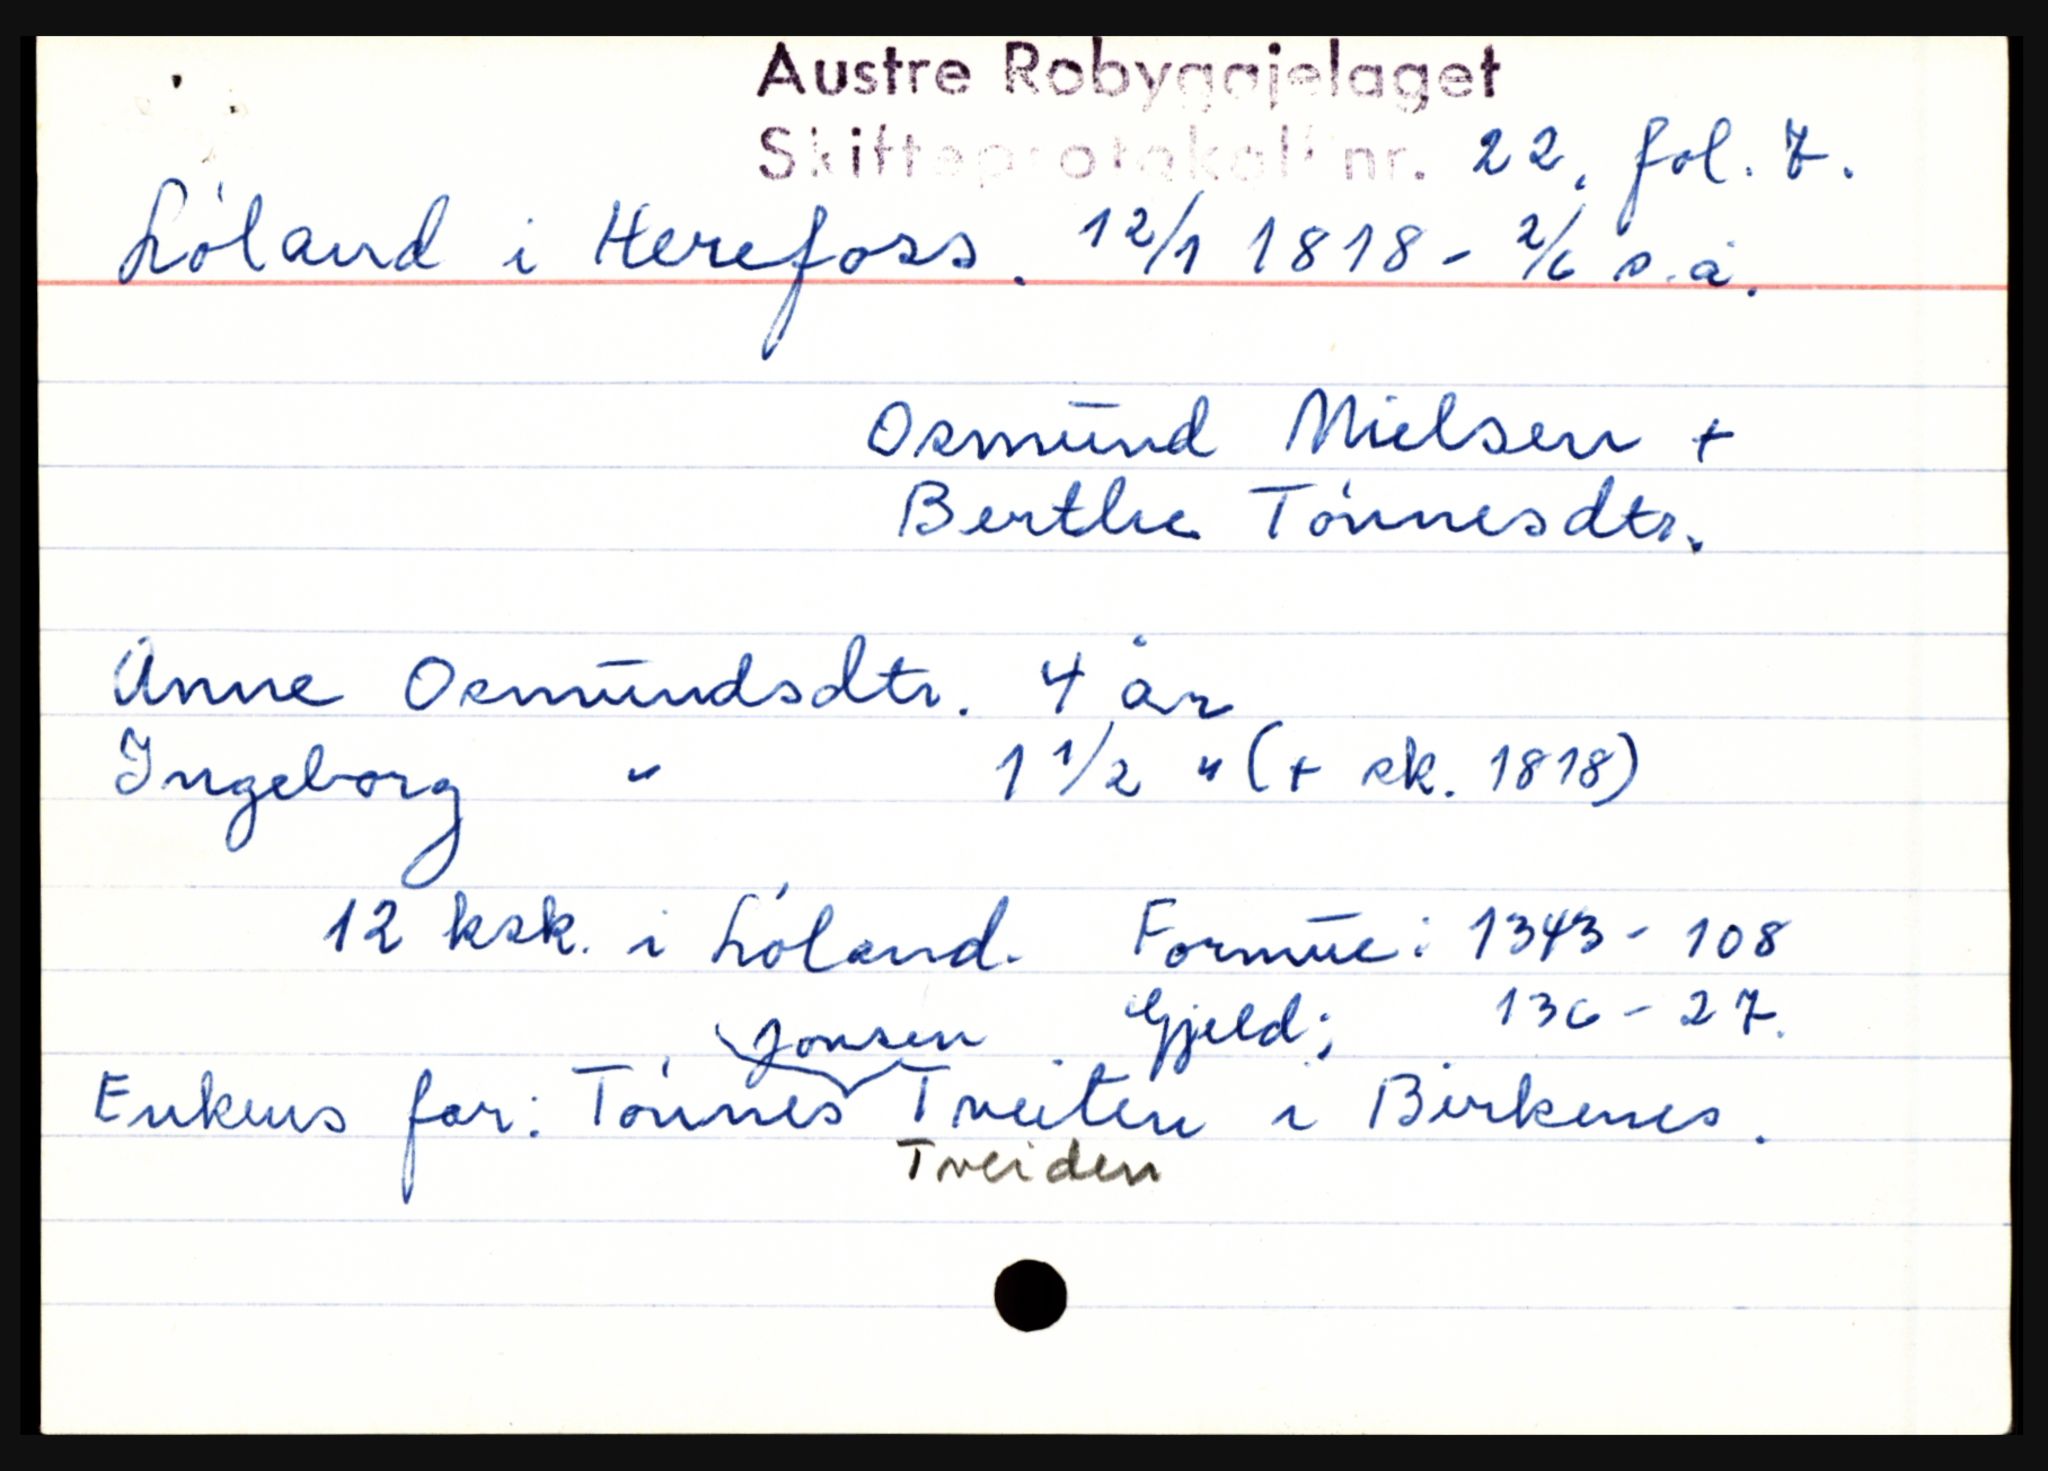 Austre Robyggjelaget
Skifteprotokoll nr. 22, fol. 7.
Lóland i Herefoss. 12/1 1818 - 2/6 s.å.
Osmund Nielsen +
Berthe Tónnesdtr.
Anne Osmundsdtr. 4 år
Ingeborg " 1 1/2 " (+ sk. 1818)
12 ksk. i Lóland. Formue: 1343 - 108
Gjeld; 136 - 27.
Jonsen
Enkens far: Tónnes Tveiten i Birkenes.
Tveiden